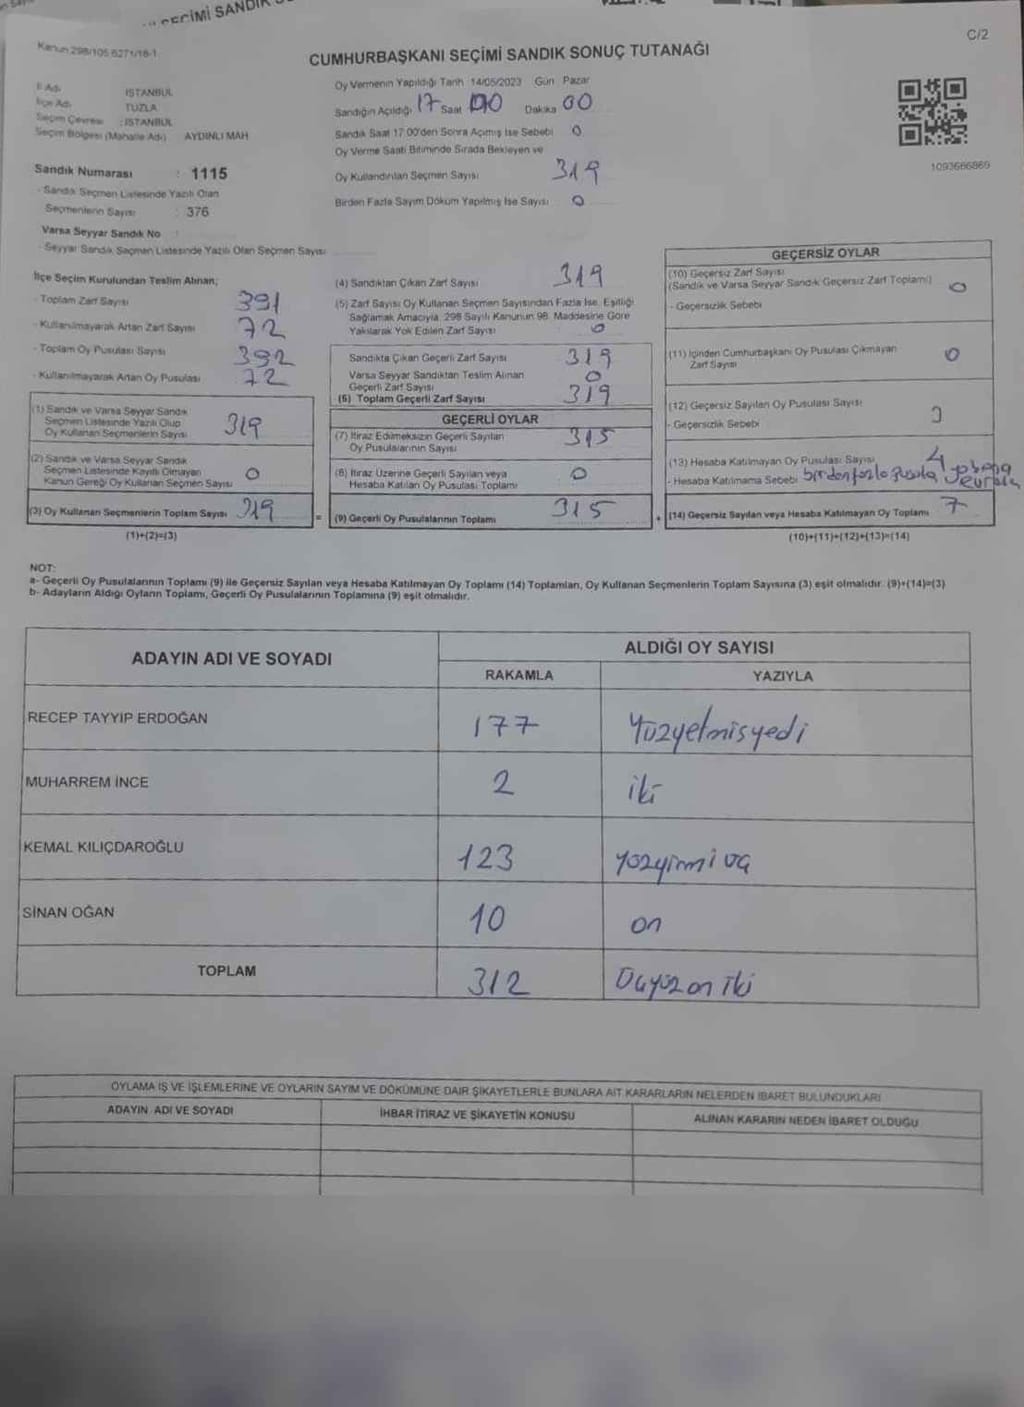 SEÇİMİ SANDIK
Kanun 298/105 6271/18-1
C/2
CUMHURBAŞKANI SEÇİMİ SANDIK SONUÇ TUTANAĞI
İl Adı İSTANBUL
İlçe Adı TUZLA
Seçim Çevresi : İSTANBUL
Seçim Bölgesi (Mahalle Adı) AYDINLI MAH
Sandık Numarası : 1115
- Sandık Seçmen Listesinde Yazılı Olan
Seçmenlerin Sayısı : 376
Varsa Seyyar Sandık No
- Seyyar Sandık Seçmen Listesinde Yazılı Olan Seçmen Sayısı
Oy Vermenin Yapıldığı Tarih 14/05/2023 Gün Pazar
Sandığın Açıldığı 17 Saat 00 Dakika 00
Sandık Saat 17.00'den Sonra Açılmış İse Sebebi 0
Oy Verme Saati Bitiminde Sırada Bekleyen ve
Oy Kullandırılan Seçmen Sayısı 319
Birden Fazla Sayım Döküm Yapılmış İse Sayısı 0
1093666869
İlçe Seçim Kurulundan Teslim Alınan;
- Toplam Zarf Sayısı 391
- Kullanılmayarak Artan Zarf Sayısı 72
- Toplam Oy Pusulası Sayısı 392
- Kullanılmayarak Artan Oy Pusulası 72
(1) Sandık ve Varsa Seyyar Sandık
Seçmen Listesinde Yazılı Olup
Oy Kullanan Seçmenlerin Sayısı 319
(2) Sandık ve Varsa Seyyar Sandık
Seçmen Listesinde Kayıtlı Olmayan
Kanun Gereği Oy Kullanan Seçmen Sayısı 0
(3) Oy Kullanan Seçmenlerin Toplam Sayısı 319 =
(1)+(2)=(3)
(4) Sandıktan Çıkan Zarf Sayısı 319
(5) Zarf Sayısı Oy Kullanan Seçmen Sayısından Fazla İse, Eşitliği
Sağlamak Amacıyla, 298 Sayılı Kanunun 98. Maddesine Göre
Yakılarak Yok Edilen Zarf Sayısı 0
Sandıkta Çıkan Geçerli Zarf Sayısı 319
Varsa Seyyar Sandıktan Teslim Alınan
Geçerli Zarf Sayısı 0
(6) Toplam Geçerli Zarf Sayısı 319
GEÇERLİ OYLAR
(7) İtiraz Edilmeksizin Geçerli Sayılan
Oy Pusulalarının Sayısı 315
(8) İtiraz Üzerine Geçerli Sayılan veya
Hesaba Katılan Oy Pusulası Toplamı 0
(9) Geçerli Oy Pusulalarının Toplamı 315 +
GEÇERSİZ OYLAR
(10) Geçersiz Zarf Sayısı
(Sandık ve Varsa Seyyar Sandık Geçersiz Zarf Toplamı) 0
- Geçersizlik Sebebi
(11) İçinden Cumhurbaşkanı Oy Pusulası Çıkmayan
Zarf Sayısı 0
(12) Geçersiz Sayılan Oy Pusulası Sayısı 3
- Geçersizlik Sebebi
(13) Hesaba Katılmayan Oy Pusulası Sayısı 4
- Hesaba Katılmama Sebebi birden fazla pusula
(14) Geçersiz Sayılan veya Hesaba Katılmayan Oy Toplamı 7
(10)+(11)+(12)+(13)=(14)
NOT:
a- Geçerli Oy Pusulalarının Toplamı (9) ile Geçersiz Sayılan veya Hesaba Katılmayan Oy Toplamı (14) Toplamları, Oy Kullanan Seçmenlerin Toplam Sayısına (3) eşit olmalıdır. (9)+(14)=(3)
b- Adayların Aldığı Oyların Toplamı, Geçerli Oy Pusulalarının Toplamına (9) eşit olmalıdır.
ADAYIN ADI VE SOYADI
ALDIĞI OY SAYISI
RAKAMLA YAZIYLA
RECEP TAYYİP ERDOĞAN 177 Yüzyetmisyedi
MUHARREM İNCE 2 iki
KEMAL KILIÇDAROĞLU 123 yüzyirmi üç
SİNAN OĞAN 10 on
TOPLAM 312 Üçyüz on iki
OYLAMA İŞ VE İŞLEMLERİNE VE OYLARIN SAYIM VE DÖKÜMÜNE DAİR ŞİKAYETLERLE BUNLARA AİT KARARLARIN NELERDEN İBARET BULUNDUKLARI
ADAYIN ADI VE SOYADI İHBAR İTİRAZ VE ŞİKAYETİN KONUSU ALINAN KARARIN NEDEN İBARET OLDUĞU